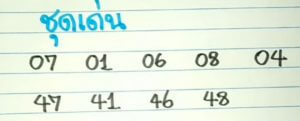 ชุดเด่น
07 01 06 08 04
47 41 46 48